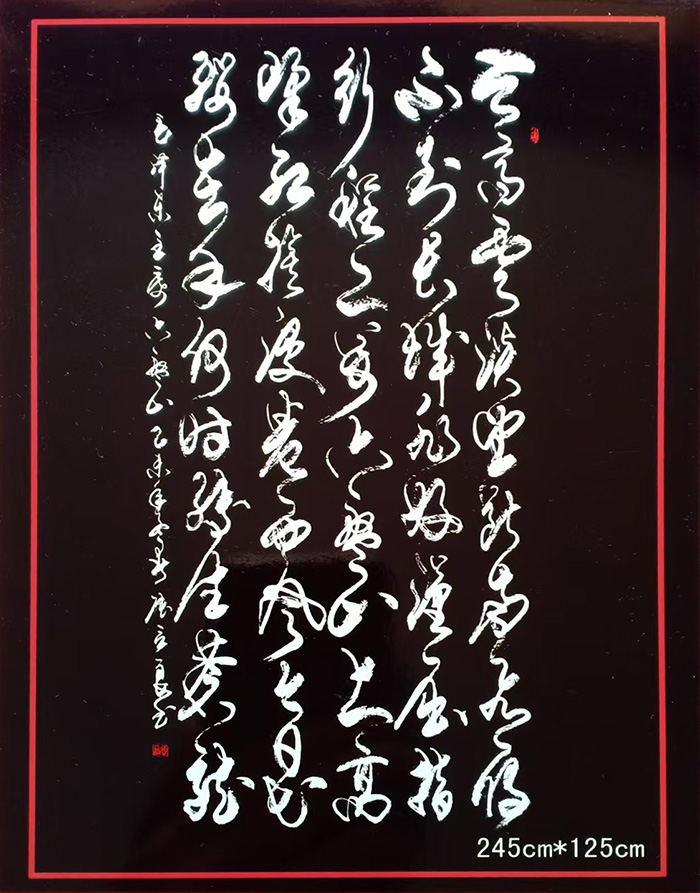 天高雲淡望断南飞雁
不到长城非好漢屈指
行程二萬六盘山上高
峰红旗漫卷西风今日长
缨在手何时缚住苍龙
毛泽东主席六盘山乙未年
245cm*125cm